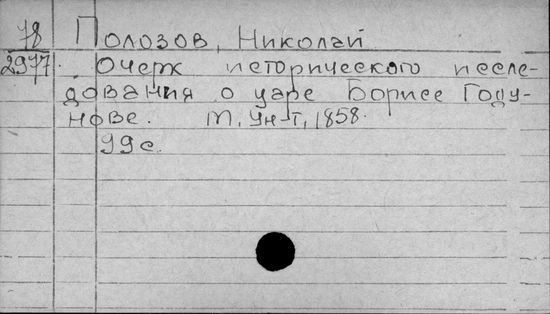 78 Полозов, Николай
2977. Очерк исторического иссле-
дования о царе Борисе Году-
нове. М, Ун-т, 1858.
99 с.